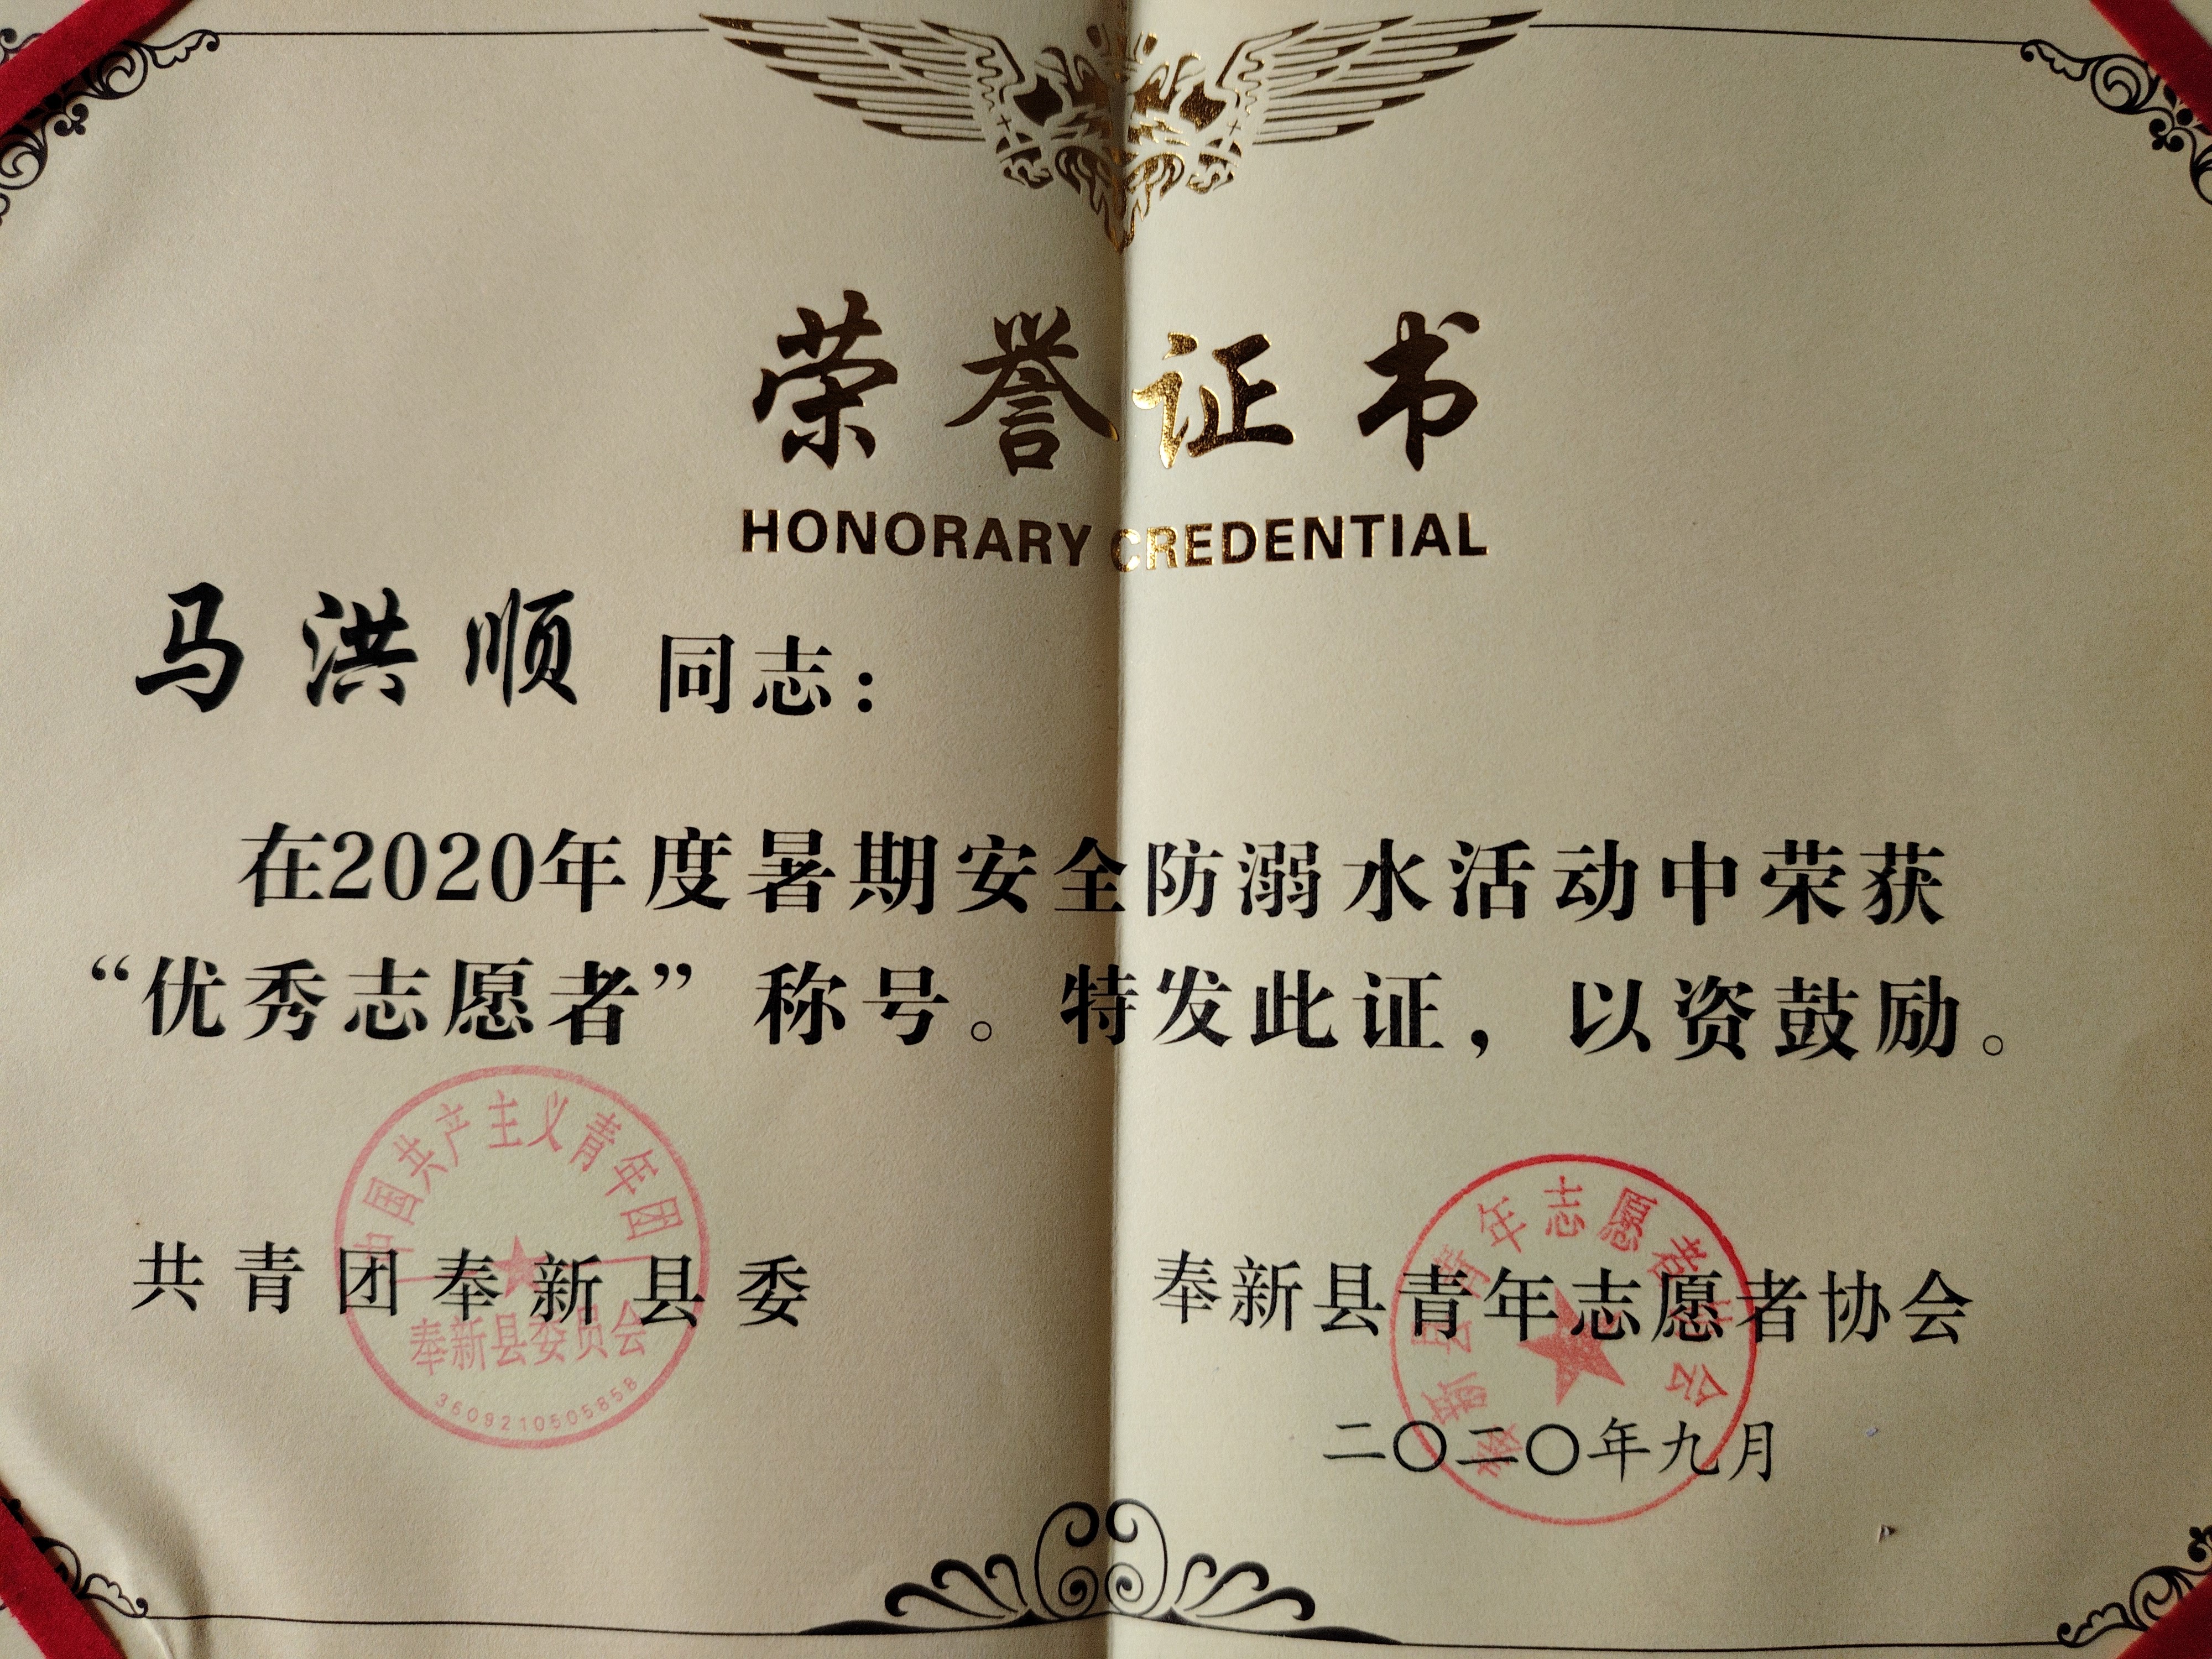 荣誉证书
HONORARY CREDENTIAL
马洪顺 同志：
在2020年度暑期安全防溺水活动中荣获
“优秀志愿者”称号。特发此证，以资鼓励。
中国共产主义青年团
共青团奉新县委
奉新县委员会
3609210505858
奉新县青年志愿者协会
奉新县青年志愿者协会
二〇二〇年九月